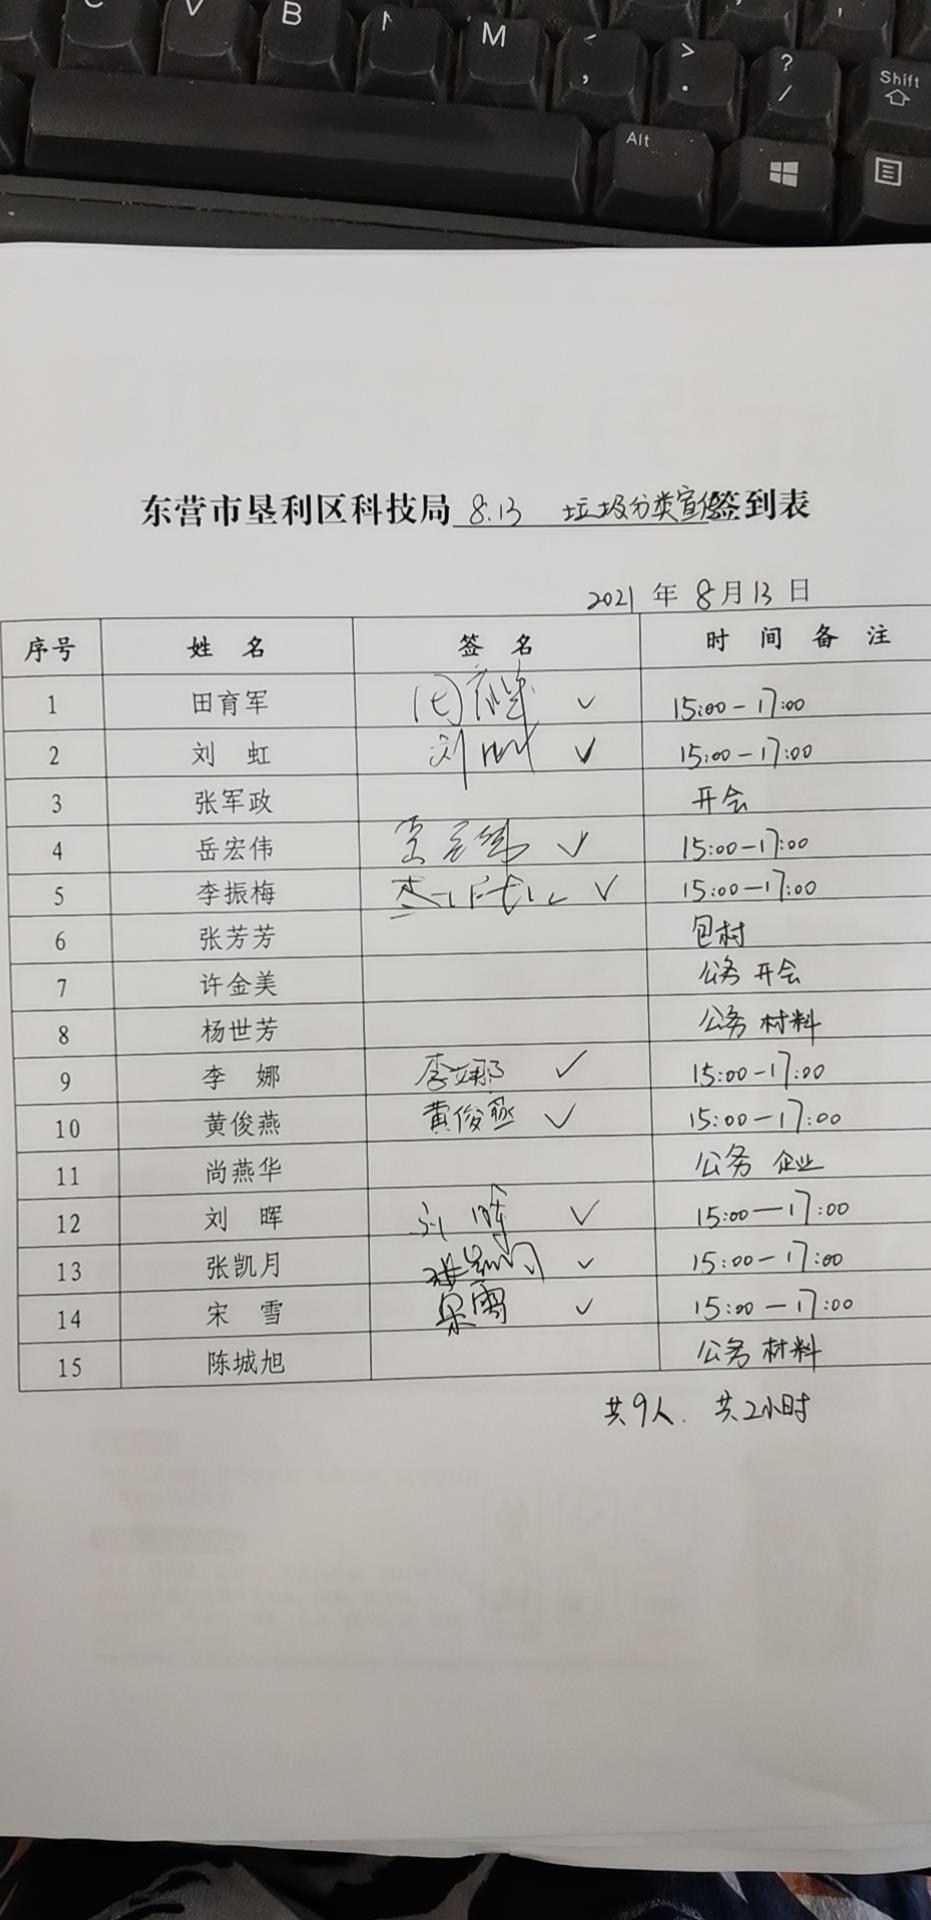 C V B N M < , > . ? / Shift
Alt
东营市垦利区科技局 8.13 垃圾分类宣传签到表
2021 年 8月13日
序号 姓 名 签 名 时 间 备 注
1 田育军 ✓ 15:00-17:00
2 刘 虹 刘虹 ✓ 15:00-17:00
3 张军政 开会
4 岳宏伟 岳宏伟 ✓ 15:00-17:00
5 李振梅 ✓ 15:00-17:00
6 张芳芳 包村
7 许金美 公务 开会
8 杨世芳 公务 材料
9 李 娜 李娜 ✓ 15:00-17:00
10 黄俊燕 黄俊燕 ✓ 15:00-17:00
11 尚燕华 公务 企业
12 刘 晖 刘晖 ✓ 15:00-17:00
13 张凯月 张凯月 ✓ 15:00-17:00
14 宋 雪 宋雪 ✓ 15:00-17:00
15 陈城旭 公务 材料
共9人. 共2小时